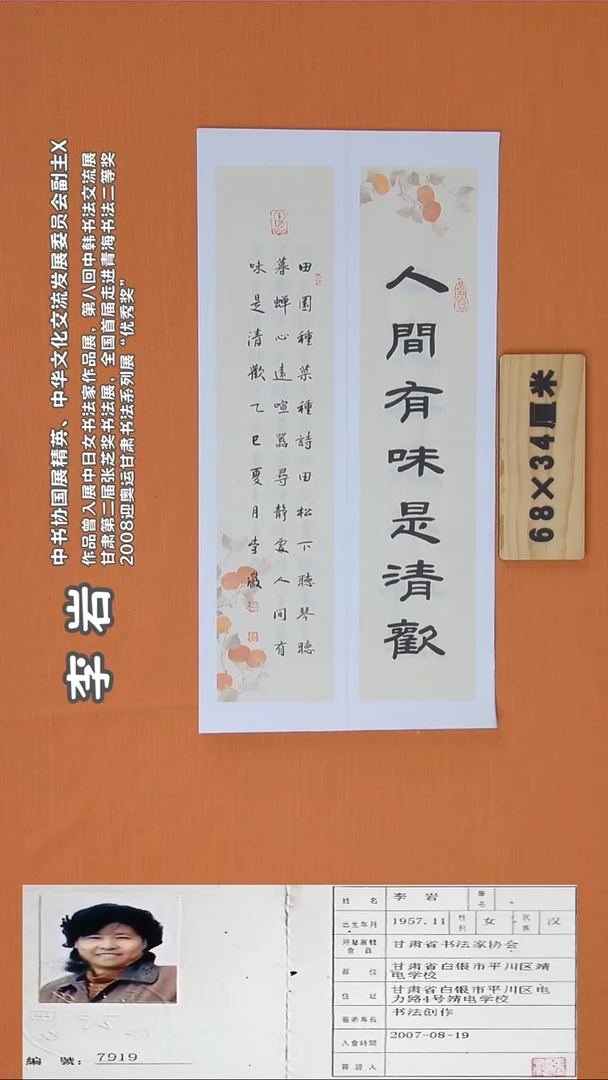 李岩
中书协国展精英、中华文化交流发展委员会副主X
作品曾入展中日女书法家作品展，第八回中韩书法交流展
甘肃第二届张芝奖书法展，全国首届走进青海书法二等奖
2008迎奥运甘肃书法系列展“优秀奖”
人間有味是清歡
田園種菜種詩田松下聽琴聽
暮蟬心遠喧囂尋靜處人间有
味是清歡乙巳夏月李巖
68×34厘米
姓名 李岩
出生年月 1957.11 性别 女 民族 汉
甘肃省书法家协会
甘肃省白银市平川区靖
电学校
住址 甘肃省白银市平川区电
力路4号靖电学校
書法创作
入會時間 2007-08-19
簽證人
編號：7919